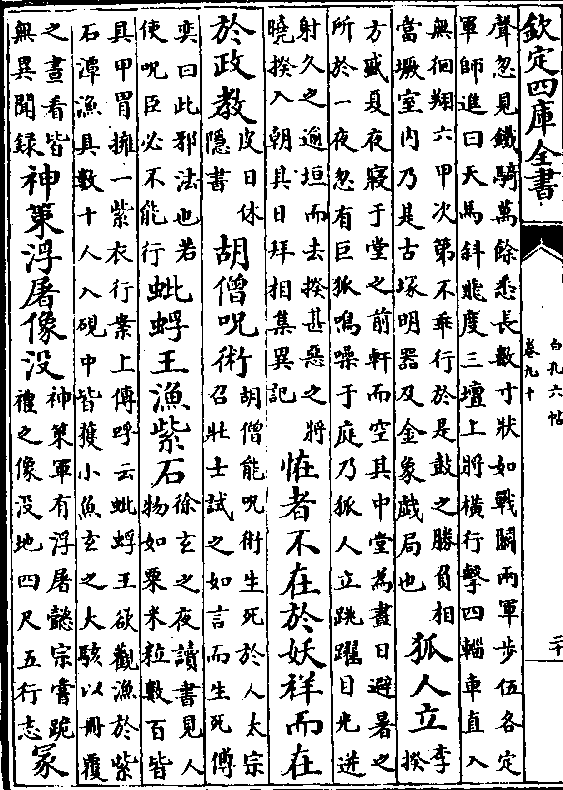 欽定四庫全書
白孔六帖
卷九十
二十
聲忽見鐵騎萬餘悉長數寸狀如戰鬬兩軍步伍各定
軍師進曰天馬斜飛度三壇上將橫行擊四輜車直入
無徊翔六甲次第不乖行於是鼓之勝負相
當撅室内乃是古塚明器及金象戯局也
狐人立
李
揆
方盛夏夜寢于堂之前軒而空其中堂為晝日避暑之
所於一夜忽有巨狐鳴噪于庭乃狐人立跳躍目光迸
射久之逾垣而去揆甚惡之將
曉揆入朝其日拜相集異記
恠者不在於妖祥而在
於政教
皮日休
隱書
胡僧呪術
胡僧能呪術生死於人太宗
召壯士試之如言而生死傅
奕曰此邪法也若
使呪臣必不能行
蚍蜉王漁紫石
徐玄之夜讀書見人
物如粟米粒數百皆
具甲冑擁一紫衣行案上傳呼云蚍蜉王欲觀漁於紫
石潭漁具數十人入硯中皆獲小魚玄之大駭以冊覆
之晝看皆
無異聞録
神策浮屠像没
神策軍有浮屠懿宗嘗跪
禮之像没地四尺五行志
冢